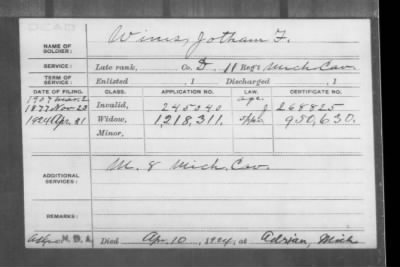 DEAD
NAME OF SOLDIER: Wines, Jotham F.
SERVICE: Late rank, Co. D, 11 Reg't Mich Cav.
TERM OF SERVICE: Enlisted , 1 Discharged , 1
DATE OF FILING. CLASS. APPLICATION NO. LAW. CERTIFICATE NO.
1907 Mar. 2 age.
1877 Nov 23 Invalid, 245240 J 268825
1924 Apr. 21 Widow, 1,218,311. 950,630.
Minor,
ADDITIONAL SERVICES: M. 8 Mich Cav.
REMARKS:
M.D.A. Died Apr. 10, 1924, at Adrian, Mich